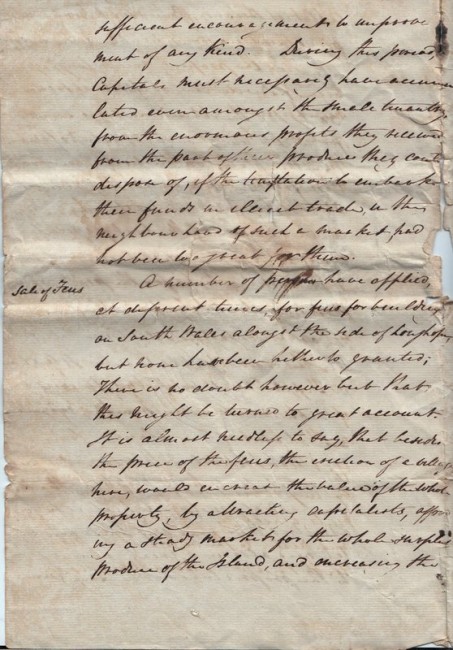 sufficient encouragement to improve
ment of any kind. During this period,
Capitals must necessarily have accumu
lated even amongst the small tenantry
from the enormous profits they received
from the part of their produce they could
dispose of, if the temptation to embark
their funds in illicit trade, in the
neighbourhood of such a market had
not been too great for them.
Sale of Feus
A number of have applied,
at different times, for feus for building
on South Wales alongst the side of
but none has been hitherto granted;
There is no doubt however but that
this might be turned to great account.
It is almost needless to say, that besides
the price of the feus, the erection of a village
here, would increase the value of the whole
property, by attracting capitalists, affor
ing a steady market for the whole surplus
produce of the Island, and increasing the